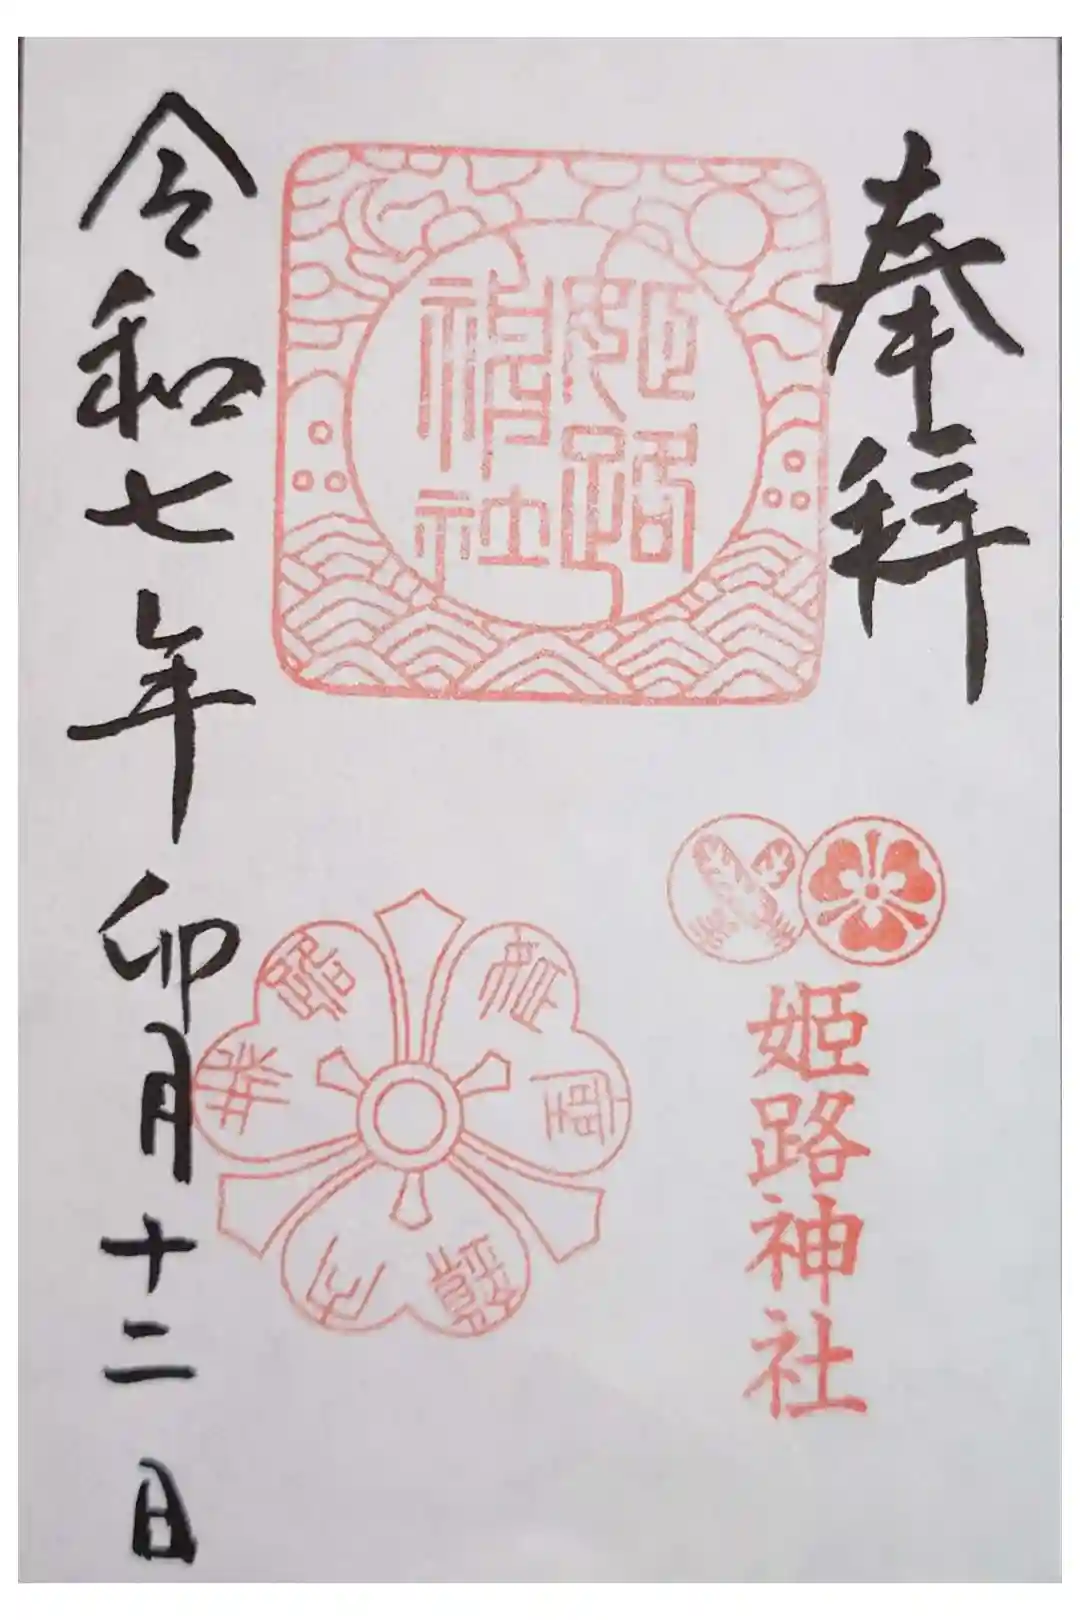 奉拝
姫路神社
姫路
神社
令和七年卯月十二日